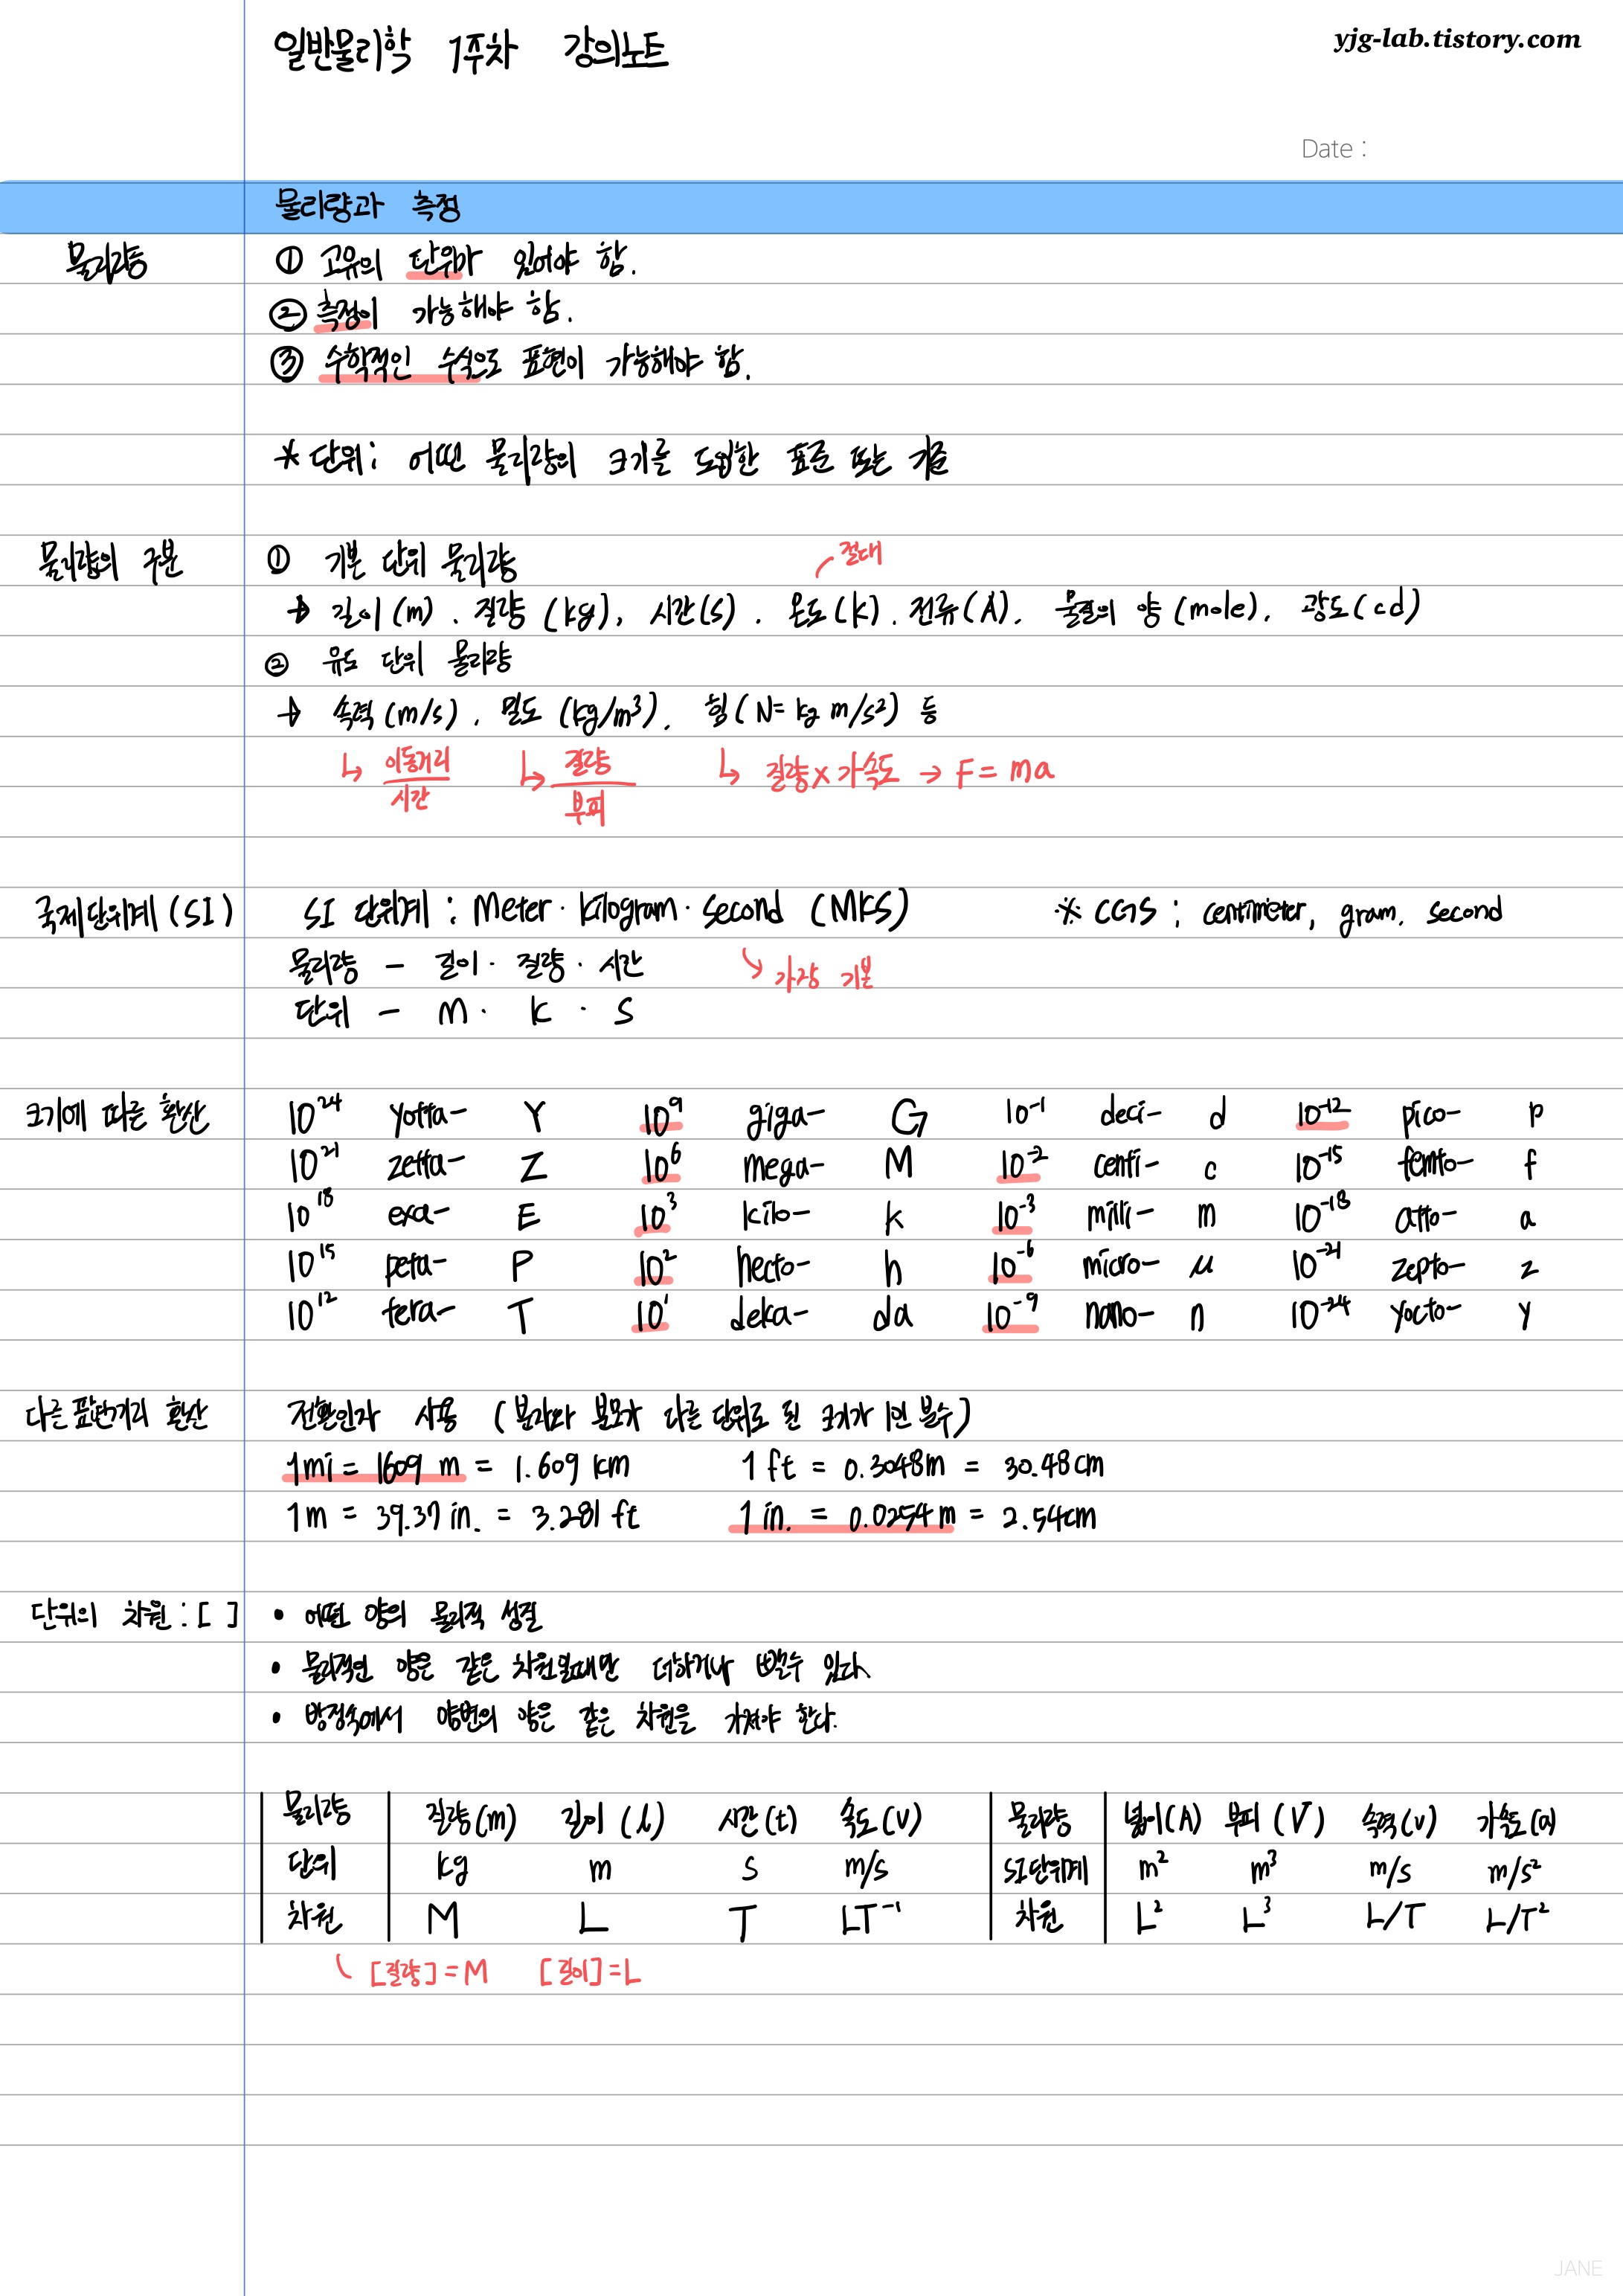 일반물리학 1주차 강의노트
yjg-lab.tistory.com
Date :
물리량과 측정
물리량
① 고유의 단위가 있어야 함.
② 측정이 가능해야 함.
③ 수학적인 수식으로 표현이 가능해야 함.
* 단위; 어떤 물리량의 크기를 도입한 표준 또는 기준
물리량의 구분
① 기본 단위 물리량
절대
→ 길이(m), 질량(kg), 시간(s), 온도(k), 전류(A), 물질의 양(mole), 광도(cd)
② 유도 단위 물리량
→ 속력(m/s), 밀도(kg/m³), 힘(N= kg m/s²) 등
↳ 이동거리/시간 ↳ 질량/부피 ↳ 질량×가속도 → F = ma
국제단위계(SI)
SI 단위계 : Meter·kilogram·second (MKS) ※ CGS ; centimeter, gram. second
물리량 - 길이·질량·시간 ↘ 가장 기본
단위 - m · k · s
크기에 따른 환산
10²⁴ yotta- Y 10⁹ giga- G 10⁻¹ deci- d 10⁻¹² pico- p
10²¹ zetta- Z 10⁶ mega- M 10⁻² centi- c 10⁻¹⁵ femto- f
10¹⁸ exa- E 10³ kilo- k 10⁻³ milli- m 10⁻¹⁸ atto- a
10¹⁵ peta- P 10² hecto- h 10⁻⁶ micro- μ 10⁻²¹ zepto- z
10¹² tera- T 10¹ deka- da 10⁻⁹ nano- n 10⁻²⁴ yocto- y
다른 표현끼리 환산
전환인자 사용 (분자와 분모가 다른 단위로 된 크기가 1인 분수)
1mi = 1609 m = 1.609 km 1 ft = 0.3048m = 30.48cm
1m = 39.37 in. = 3.281 ft 1 in. = 0.0254 m = 2.54cm
단위의 차원 : [ ]
• 어떤 양의 물리적 성질
• 물리적인 양은 같은 차원일때만 더하거나 뺄수 있다.
• 방정속에서 양변의 양은 같은 차원을 가져야 한다.
물리량 질량(m) 길이(l) 시간(t) 속도(v) 물리량 넓이(A) 부피(V) 속력(v) 가속도(a)
단위 kg m s m/s SI단위계 m² m³ m/s m/s²
차원 M L T LT⁻¹ 차원 L² L³ L/T L/T²
[질량]=M [길이]=L
JANE